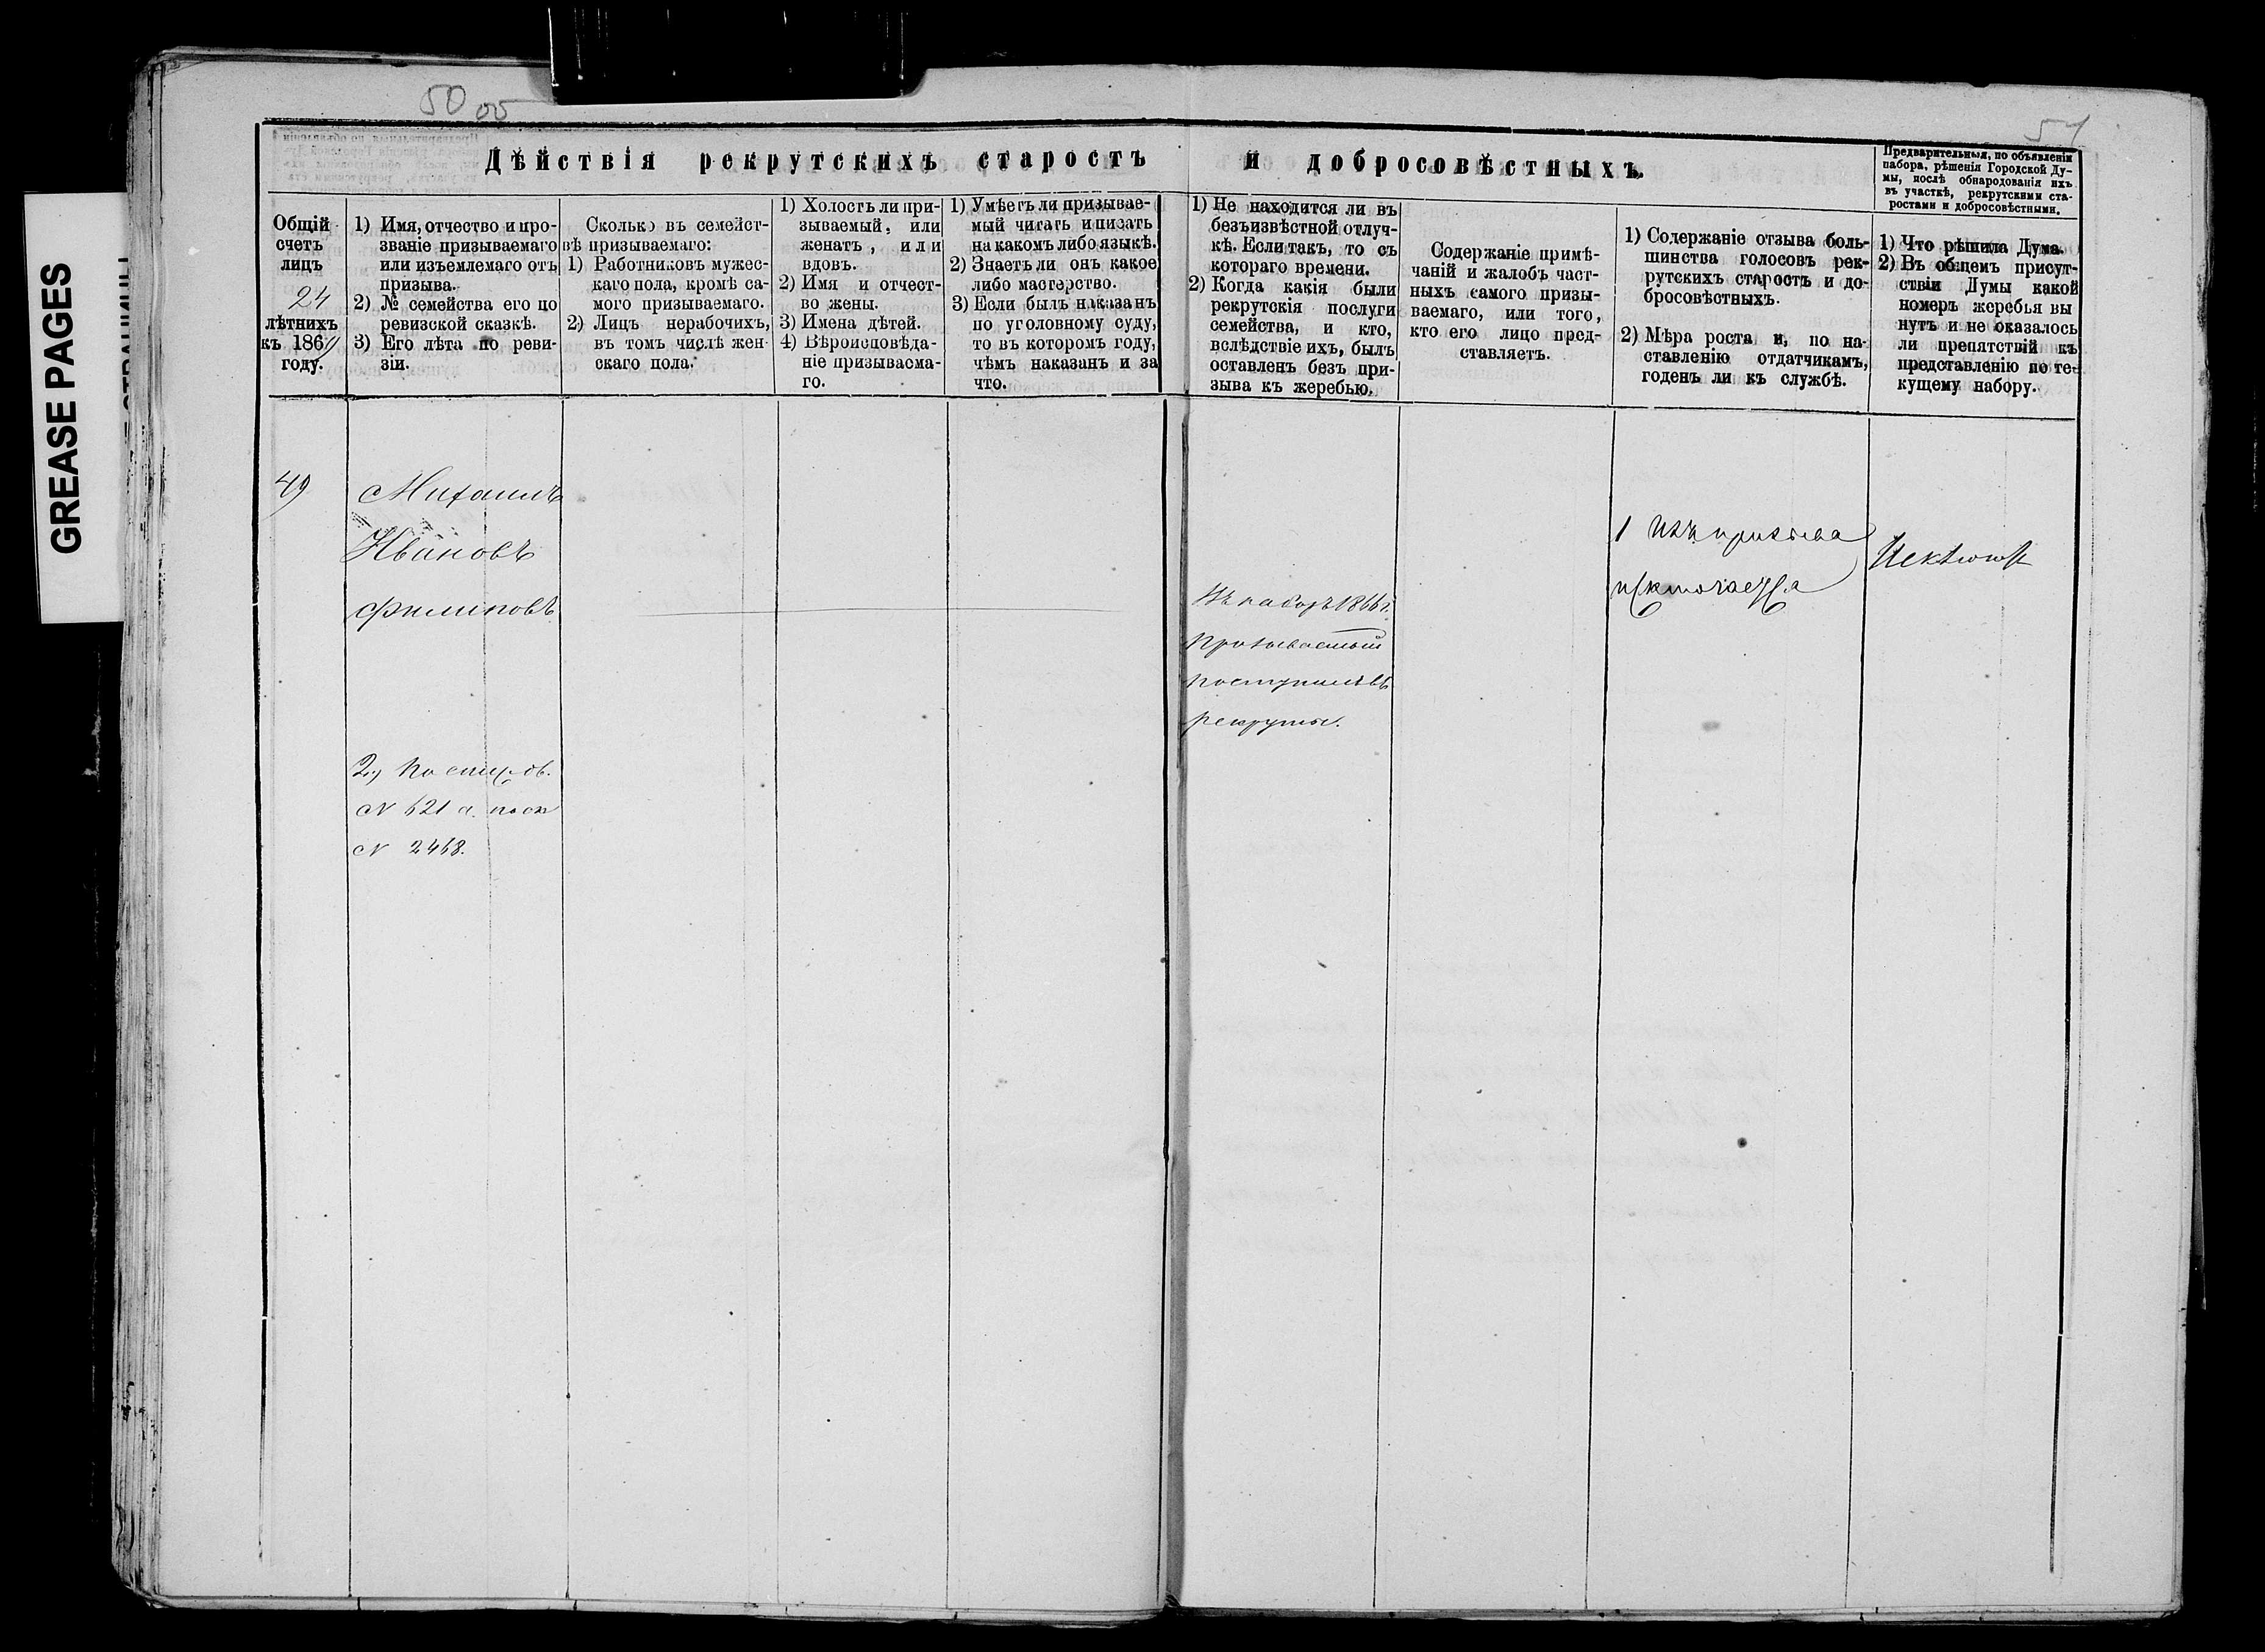 GREASE PAGES
50
51
Дѣйствія рекрутскихъ старостъ и добросовѣстныхъ.
Предварительныя, по объявленіи
набора, рѣшенія Городской Ду-
мы, послѣ обнародованія ихъ
въ участкѣ, рекрутскими ста-
ростами и добросовѣстными.
Общій
счетъ
лицъ
24
лѣтнихъ
къ 1869
году.
1) Имя, отчество и про-
званіе призываемаго
или изъемлемаго отъ
призыва.
2) № семейства его по
ревизской сказкѣ.
3) Его лѣта по реви-
зіи.
Сколько въ семейст-
вѣ призываемаго:
1) Работниковъ мужес-
каго пола, кромѣ са-
мого призываемаго.
2) Лицъ нерабочихъ,
въ томъ числѣ жен-
скаго пола.
1) Холостъ ли при-
зываемый, или
женатъ, или
вдовъ.
2) Имя и отчест-
во жены.
3) Имена дѣтей.
4) Вѣроисповѣда-
ніе призываема-
го.
1) Умѣетъ ли призывае-
мый читать и писать
на какомъ либо языкѣ.
2) Знаетъ ли онъ какое
либо мастерство.
3) Если былъ наказанъ
по уголовному суду,
то въ которомъ году,
чѣмъ наказанъ и за
что.
1) Не находится ли въ
безъизвѣстной отлуч-
кѣ. Если такъ, то съ
котораго времени.
2) Когда какія были
рекрутскія послуги
семейства, и кто,
вслѣдствіе ихъ, былъ
оставленъ безъ при-
зыва къ жеребью.
Содержаніе примѣ-
чаній и жалобъ част-
ныхъ самого призы-
ваемаго, или того,
кто его лицо пред-
ставляетъ.
1) Содержаніе отзыва боль-
шинства голосовъ рек-
рутскихъ старостъ и до-
бросовѣстныхъ.
2) Мѣра роста и, по на-
ставленію отдатчикамъ,
годенъ ли къ службѣ.
1) Что рѣшила Дума.
2) Въ общемъ присут-
ствіи Думы какой
номеръ жеребья вы
нутъ и не оказалось
ли препятствій къ
представленію по те-
кущему набору.
49
Михаилъ
Ивановъ
Филиповъ
2.) По
N 621 а. по ск
N 2468.
Въ наборъ 1866 г.
призываемый
поступилъ въ
рекруты.
1 Изъ призыва
исключается